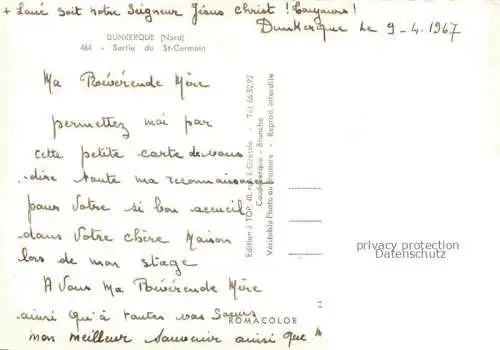 + Loué soit notre Seigneur Jésus Christ ! Toujours !
Dunkerque le 9-4.1967
DUNKERQUE (Nord)
464 - Sortie du St-Germain
Ma Révérende Mère
permettez moi par
cette petite carte de vous
dire toute ma reconnaissance
pour votre si bon accueil
dans votre chère Maison
lors de mon stage
A Vous Ma Révérende Mère
ainsi qu'à toutes vos Soeurs
mon meilleur souvenir ainsi que
Edition J. TOP, 40, rue J. - Tél. 66.52.92
Coudekerque - Branche
Véritable Photo au Bromure - Reprod. interdite
ROMACOLOR
privacy protection
Datenschutz